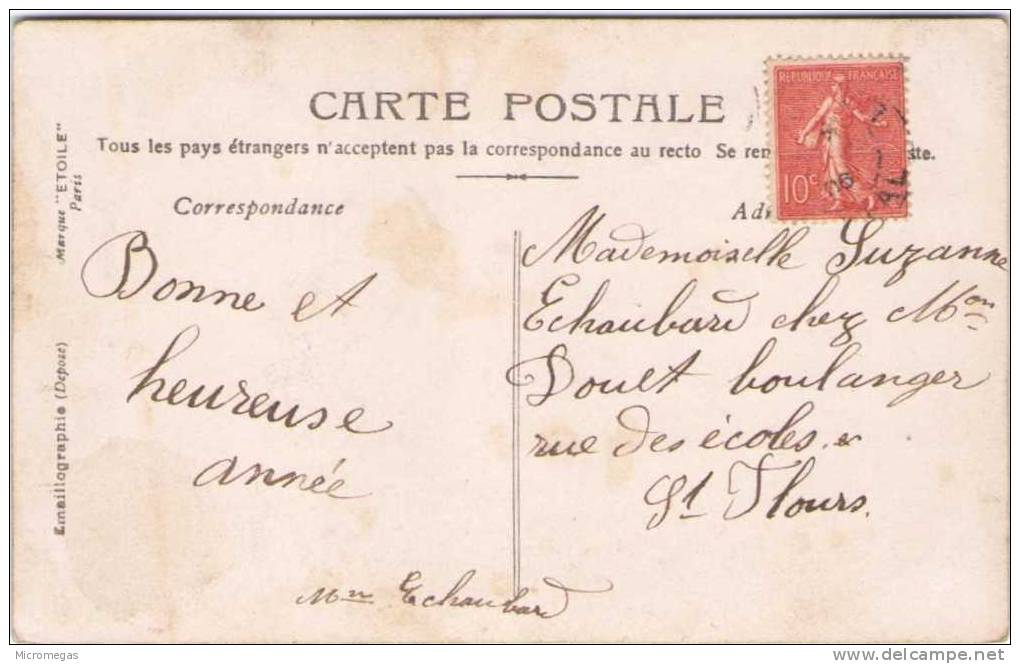 CARTE POSTALE
Tous les pays étrangers n'acceptent pas la correspondance au recto Se ren ste.
REPUBLIQUE FRANÇAISE
10c
06
Marque "ETOILE"
Paris
Emaillographie (Déposé)
Correspondance
Bonne et
heureuse
année
Mme Echaubard
Ad
Mademoiselle Suzanne
Echaubard chez Mon
Douet boulanger
rue des écoles
St Flours.
Micromegas
www.delcampe.net